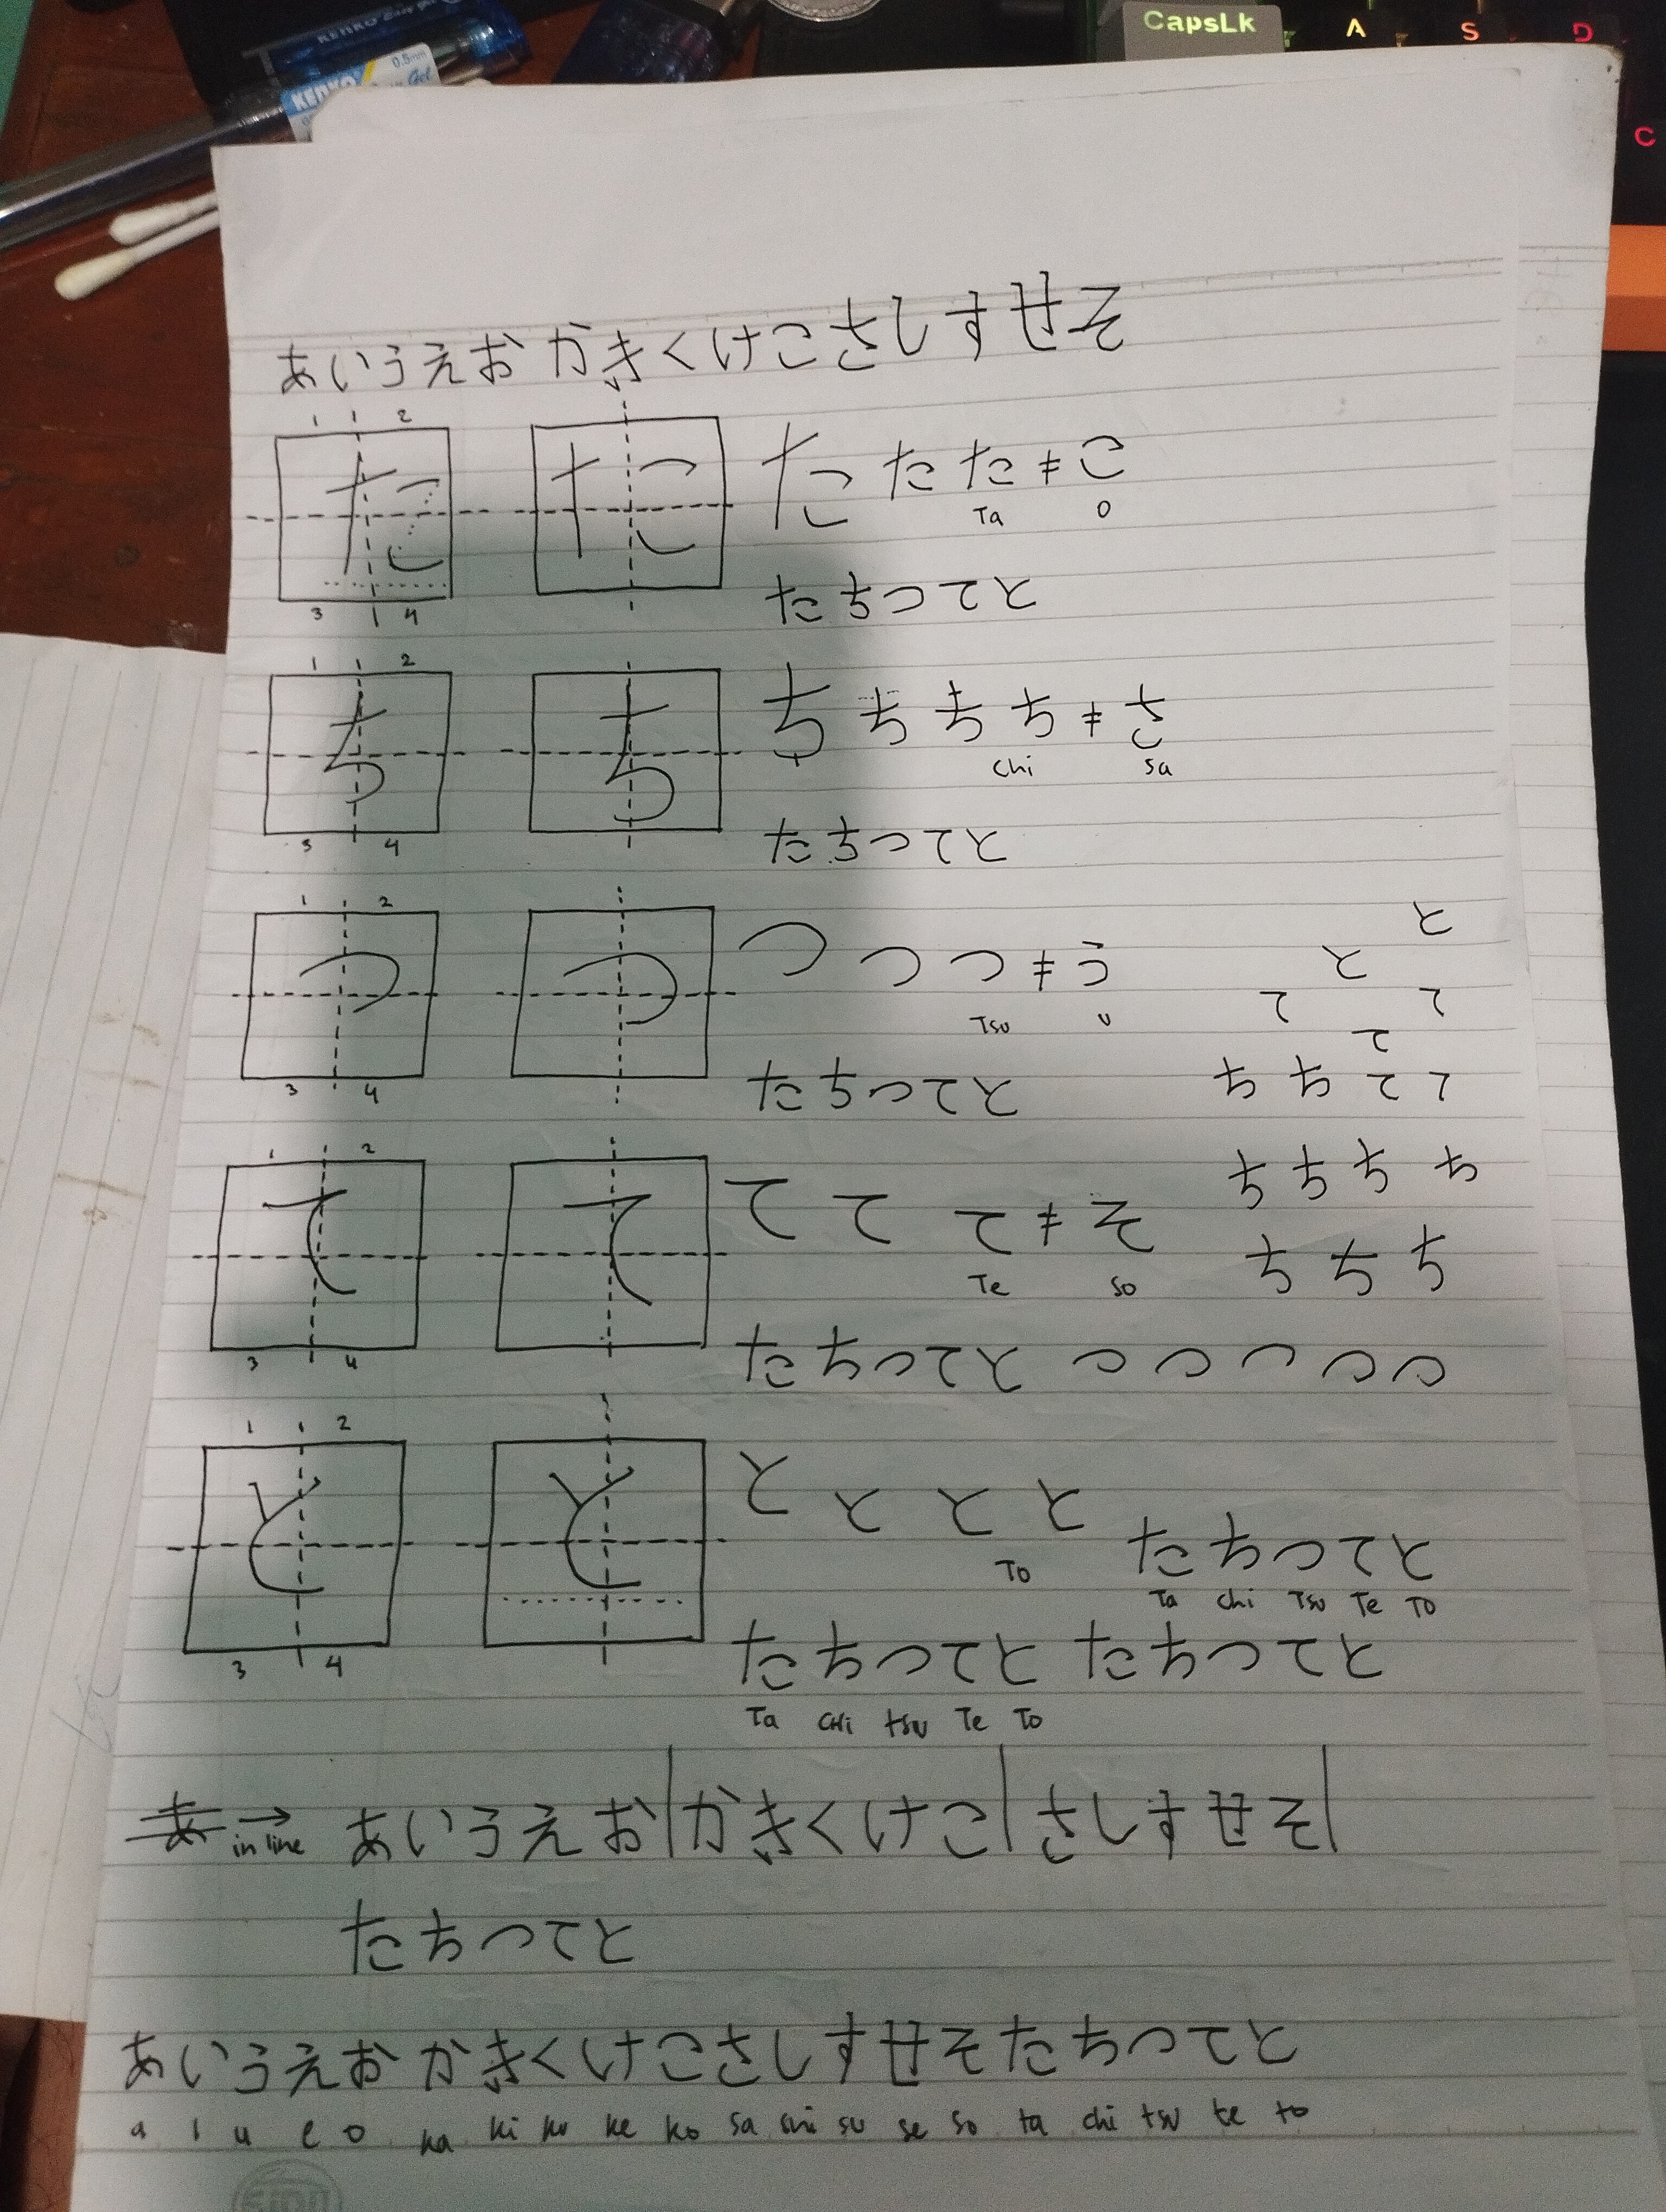 KENKO Easy Gel
KENKO 0.5mm Gel
CapsLk A S D
C
あいうえおかきくけこさしすせそ
1 2
た た た た た ≠ こ
Ta o
3 4
たちつてと
1 2
ち ち ち ち ち ち ≠ さ
chi sa
3 4
たちつてと
1 2
つ つ つ つ つ ≠ う
Tsu u
3 4
たちつてと
と
と
て て
て
ち ち て て
1 2
て て て て て ≠ そ
Te so
3 4
ち ち ち ち
ち ち ち
たちつてと つ つ つ つ つ
1 2
と と と と と と
To
3 4
たちつてと
Ta chi Tsu Te To
たちつてと たちつてと
Ta CHi tsu Te To
あ → in line あいうえお|かきくけこ|さしすせそ|
たちつてと
あいうえおかきくけこさしすせそたちつてと
a i u e o ka ki ku ke ko sa shi su se so ta chi tsu te to